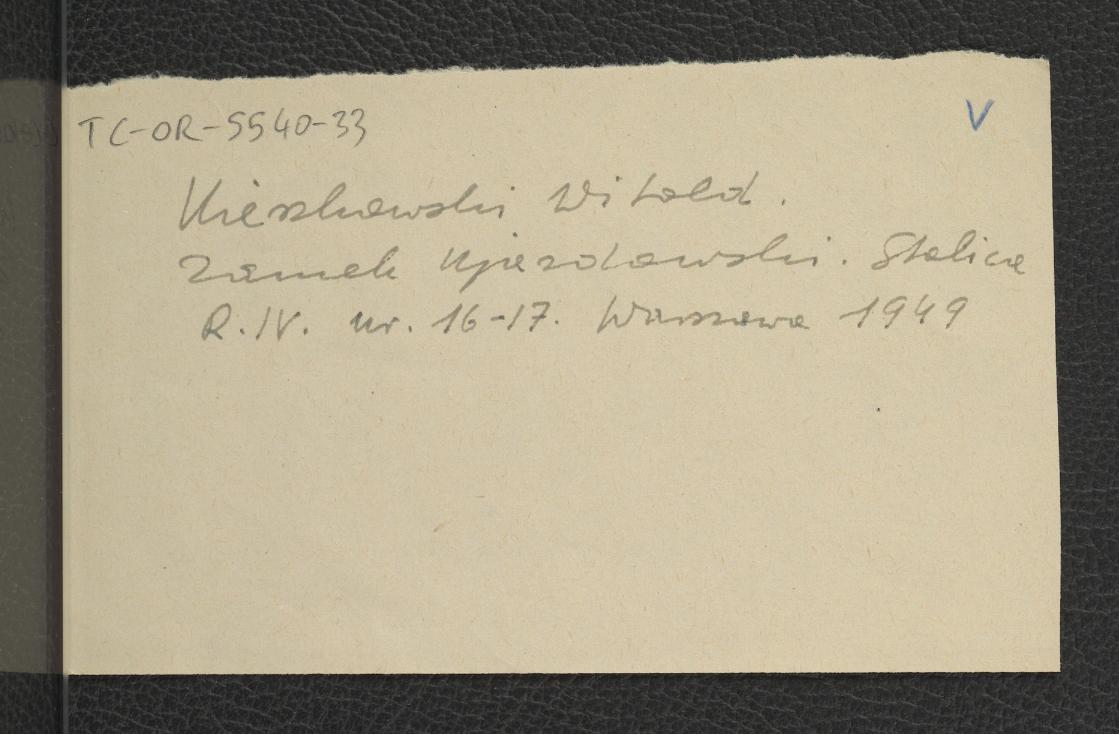 TC-OR-5540-33
V
Kieszkowski Witold.
Zamek Ujazdowski. Stolica
R.IV. nr. 16-17. Warszawa 1949